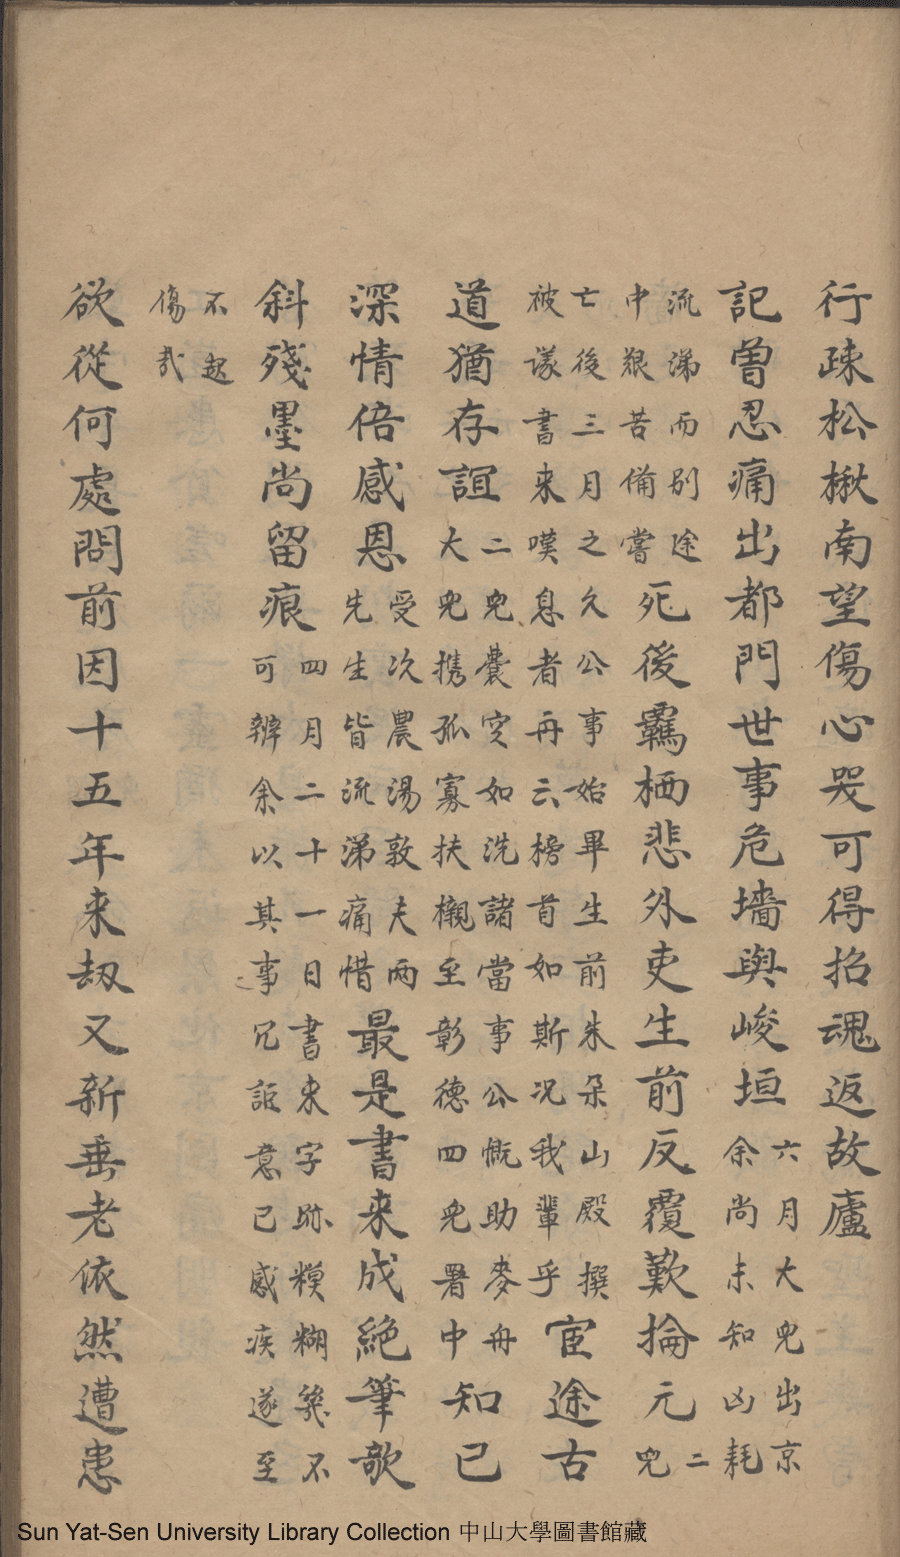 行疎松楸南望傷心哭可得招魂返故廬
記曾忍痛出都門世事危墻與峻垣六月大兒出京余尚未知凶耗
流涕而别途中艱苦備嘗死後羈栖悲外吏生前反覆歎掄元二兒
亡後三月之久公事始畢生前朱朵山殿撰被議書来嘆息者再云榜首如斯况我輩乎宦途古
道猶存誼二兒囊空如洗諸當事公慨助麥舟大兒携孤寡扶櫬至彰德四兒署中知已
深情倍感恩受次農湯敦夫兩先生皆流涕痛惜最是書来成絶筆欹
斜殘墨尚留痕四月二十一日書来字跡糢糊幾不可辨余以其事冗詎意已感疾遂至
不起傷哉
欲從何處問前因十五年来刼又新垂老依然遭患
Sun Yat-Sen University Library Collection 中山大學圖書館藏